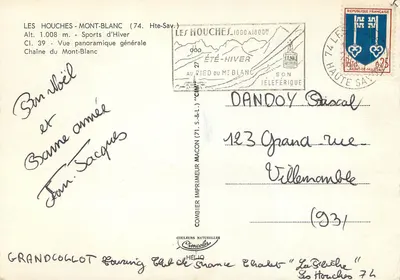 LES HOUCHES - MONT-BLANC (74. Hte-Sav.)
Alt. 1.008 m. - Sports d'Hiver
Cl. 39 - Vue panoramique générale
Chaîne du Mont-Blanc
LES HOUCHES 1000 à 1800m
ÉTÉ-HIVER
AU PIED DU MT BLANC
SON
TÉLÉFÉRIQUE
74 LES
HAUTE SAV
0,25
Bon Noël
et
Bonne année
Jean-Jacques
COMBIER IMPRIMEUR MACON (71. S.-&-L.) "CIM"
DANDOY Pascal
123 Grand-rue
Villemomble
(93)
COULEURS NATURELLES
Cimcolor
HELIO
GRANDCOLLOT Touring Club de France Chalet "La Berthe"
Les Houches 74